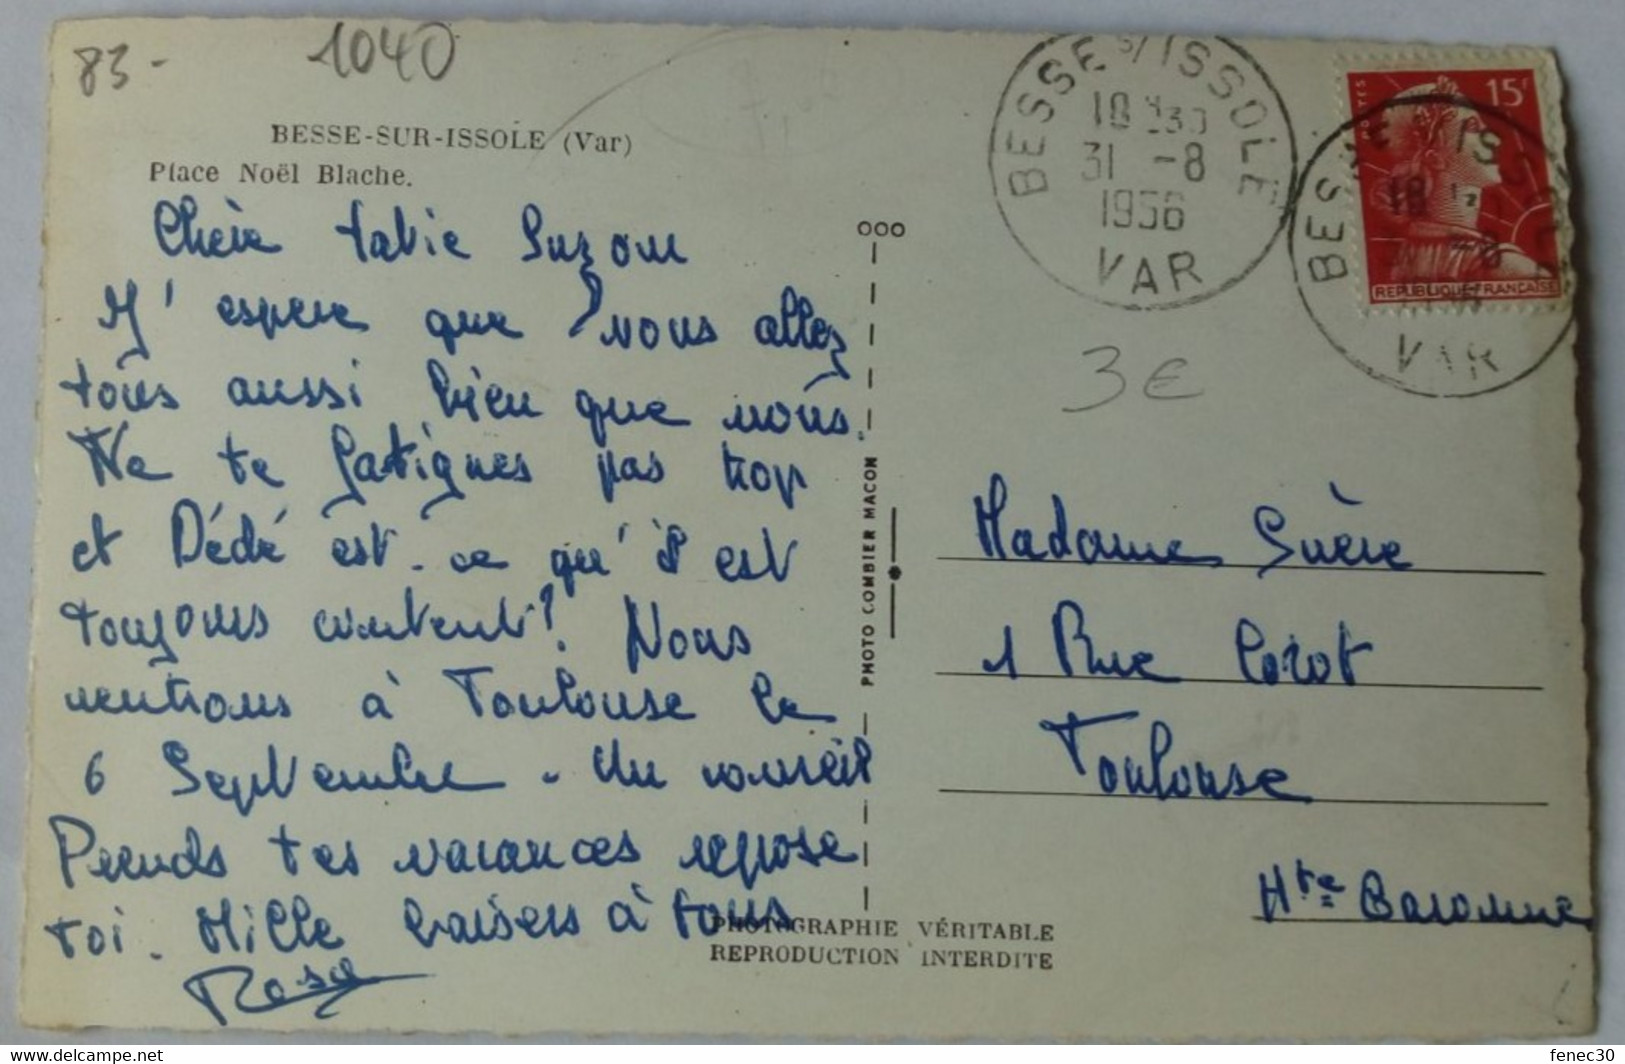 83 - 1040
BESSE-SUR-ISSOLE (Var)
Place Noël Blache.
Chère tatie Suzou
J'espere que vous allez
tous aussi bien que nous.
Ne te fatigues pas trop
et Dédé est-ce qu'il est
toujours content? Nous
rentrons à Toulouse le
6 Septembre. Un conseil
Prends tes vacances repose
toi. Mille baisers à tous
Rose
PHOTO COMBIER MACON
PHOTOGRAPHIE VÉRITABLE
REPRODUCTION INTERDITE
BESSE S/ISSOLE
18 H30
31 -8
1956
VAR
POSTES
15F
REPUBLIQUE FRANÇAISE
BESSE S/ISSOLE
18
VAR
3€
Madame Suère
1 Rue Corot
Toulouse
Hte Garonne
delcampe.net
fenec30